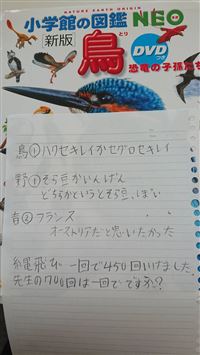 NATURE EARTH ORIGIN
小学館の図鑑 NEO
新版
鳥
とり
DVD
つき
恐竜の子孫たち
鳥① ハクセキレイかセグロセキレイ
野① そら豆かいんげん
どちらかというとそら豆っぽい
春② フランス
オーストリアだと思いたかった
縄飛び 一回で450回いけました
先生の700回は一回でですか?